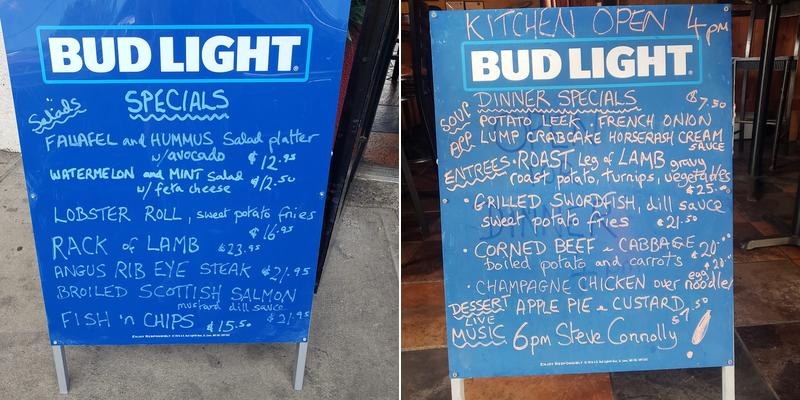 BUD LIGHT
SPECIALS
Salads
FALAFEL and HUMMUS Salad platter
w/avocado $12.95
WATERMELON and MINT salad
w/ feta cheese $12.50
LOBSTER ROLL, sweet potato fries
$16.95
RACK of LAMB $23.95
ANGUS RIB EYE STEAK $21.95
BROILED SCOTTISH SALMON
mustard dill sauce
FISH 'n CHIPS $15.50 $21.95
ENJOY RESPONSIBLY
KITCHEN OPEN 4pm
BUD LIGHT
DINNER SPECIALS
SOUP POTATO LEEK · FRENCH ONION $7.50
APP LUMP CRABCAKE HORSERASH CREAM
SAUCE
ENTREES · ROAST Leg of LAMB gravy
roast potato, turnips, vegetables
$25.00
· GRILLED SWORDFISH, dill sauce
sweet potato fries $21.50
· CORNED BEEF & CABBAGE $20.00
boiled potato and carrots $20.00
· CHAMPAGNE CHICKEN over egg noodles
DESSERT APPLE PIE & CUSTARD $7.50
LIVE
MUSIC 6pm Steve Connolly
ENJOY RESPONSIBLY